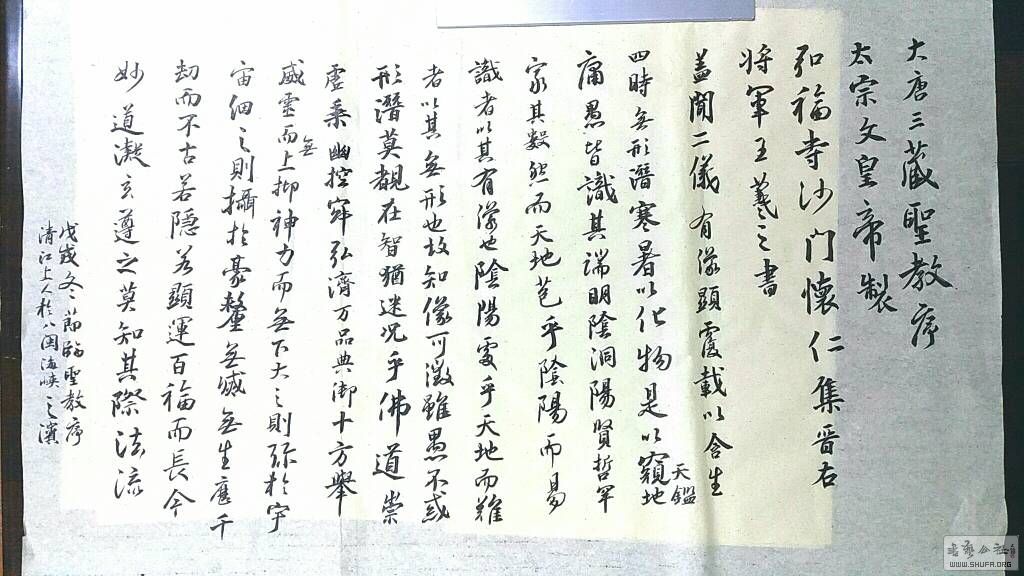 大唐三藏聖教序
太宗文皇帝製
弘福寺沙门懷仁集晋右
將軍王羲之書
盖聞二儀有像顯覆載以含生
四時無形潛寒暑以化物是以窺地
天鑑
庸愚皆識其端明陰洞陽賢哲罕
窮其數然而天地苞乎陰陽而易
識者以其有像也陰陽處乎天地而難
者以其無形也故知像可徵雖愚不惑
形潛莫覩在智猶迷況乎佛道崇
虛乘幽控寂弘濟万品典御十方舉
威靈而上抑神力而無下大之則弥於宇
無
宙细之則攝於豪釐無滅無生歷千
劫而不古若隱若顯運百福而長今
妙道凝玄遵之莫知其際法流
戊戌冬節臨聖教序
清江上人於八闽海峡之濱
WWW.SHUFA.ORG